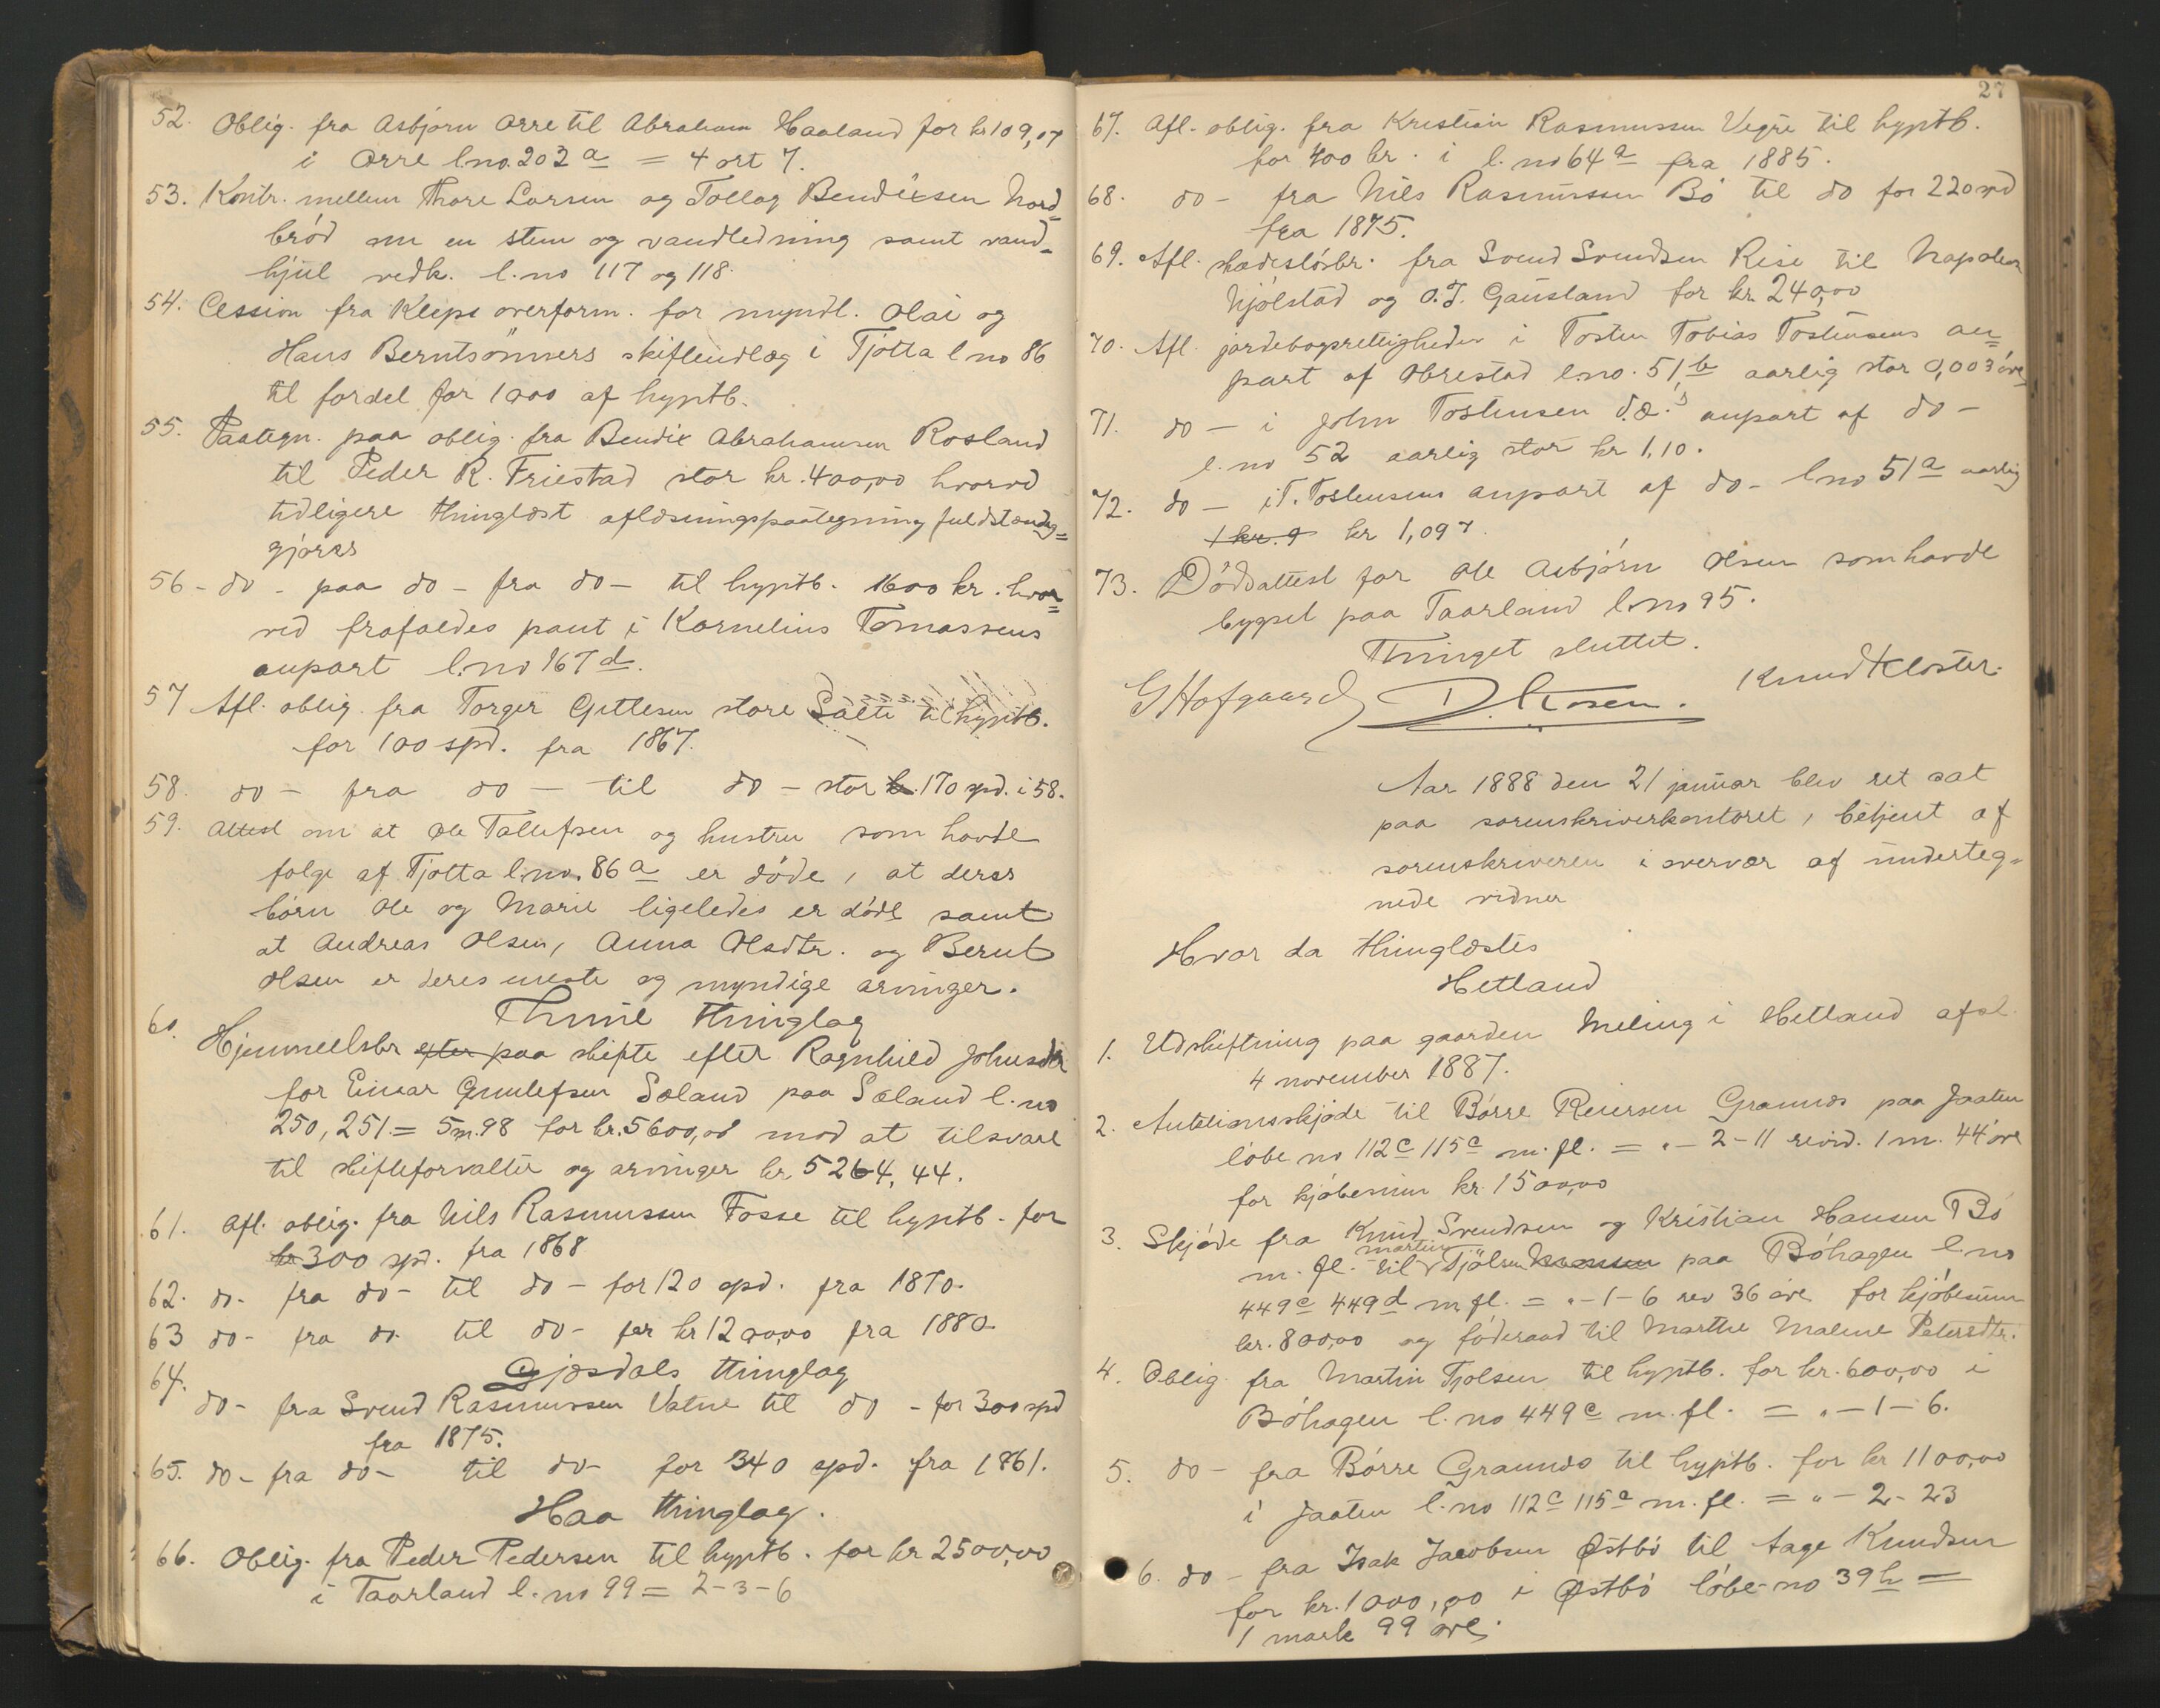 52. Oblig. fra Asbjørn Orre til Abraham Haaland for kr 109,07
i Orre l.no. 203 a = 4 ort 7.
53. Kontr. mellem Thore Larsen og Tollag Bendixsen Nord=
brød om en stem og vandledning samt vand=
hjul vedk. l.no 117 og 118.
54. Cession fra Kleps overform. for myndl. Olai og
Hans Berntsønners skifteudlæg i Tjøtta l no 86
til fordel for 1000 af hyptb.
55. Paategn. paa oblig. fra Bendix Abrahamsen Rosland
til Peder R. Friestad stor kr. 400,00 hvorved
tidligere thinglæst aflæsningspaategning fuldstændig=
gjøres
56 - do - paa do - fra do - til hyptb. 1600 kr. hvor=
ved frafaldes pant i Kornelius Tomassens
anpart l.no 167 d.
57 Afl. oblig. fra Torger Gittlesen store Salte til hyptb.
for 100 spd. fra 1867.
58. do - fra do - til do - stor 170 spd. i 58.
59. Attest om at Ole Tollefsen og hustru som havde
folge af Tjøtta l.no. 86 a er døde, at deres
børn Ole og Marie ligeledes er døde samt
at Andreas Olsen, Anna Olsdtr. og Bernt
Olsen er deres eneste og myndige arvinger.
Thime thinglag
60. Hjemmelsbr efter paa skifte efter Ragnhild Johnsdtr
for Einar Gunlefsen Sæland paa Sæland l.no
250, 251 = 5 m. 98 for kr. 5600,00 mod at tilsvare
til skifteforvalter og arvinger kr 5264,44.
61. Afl. oblig. fra Nils Rasmussen Fosse til hyptb. for
kr 300 spd. fra 1868
62. do- fra do- til do- for 120 spd. fra 1870.
63 do- fra do- til do- for kr 1200,00 fra 1880.
Gjesdals thinglag
64. do- fra Svend Rasmussen Vatne til do - for 300 spd
fra 1875.
65. do- fra do- til do- for 340 spd. fra 1861.
Haa thinglag.
66. Oblig. fra Peder Pedersen til hyptb. for kr 2500,00
i Taarland l.no 99 = 2-3-6
27
67. Afl. oblig. fra Kristian Rasmussen Vigre til hyptb.
for 400 kr. i l.no 64 a fra 1885.
68. do - fra Nils Rasmussen Bø til do for 220 spd
fra 1875.
69. Afl. skadesløsbr. fra Svend Svendsen Rise til Napoleon
Njølstad og O.T. Gausland for kr. 240,00
70. Afl. jordebogsrettigheder i Tosten Tobias Tostensens an=
part af Obrestad l.no. 51, b aarlig stor 0,003 øre
71. do - i John Tostensen d.æ.s anpart af do -
l.no 52 aarlig stor kr 1,10.
72. do - i T. Tostensens anpart af do - l no 51 a aarlig
1 kr. 9 kr 1,097.
73. Dødsattest for Ole Asbjørn Olsen som havde
bygsel paa Taarland l.no 95.
Thinget sluttet.
G Hofgaard Knud Kloster.
Aar 1888 den 21 januar blev ret sat
paa sorenskriverkontoret, betjent af
sorenskriveren i overvær af underteg=
nede vidner
Hvor da thinglæstes
Hetland
1. Udskiftning paa gaarden Meling i Hetland afsl.
4 november 1887.
2. Auktionsskjøde til Børre Reiersen Grannes paa Jaaten
løbe no 112 c 115 c m. fl. = " - 2 - 11 revid. 1 m. 44 øre
for kjøbesum kr. 1500,00
3. Skjøde fra Knud Svendsen og Kristian Hansen Bø
m. fl. til martin Tjølsen paa Bøhagen l.no
449 c 449 d m fl. = " - 1 - 6 rev 36 øre for kjøbesum
kr. 800,00 og føderaad til Marthe Malene Petersdtr.
4. Oblig. fra Martin Tjølsen til hyptb. for kr. 600,00 i
Bøhagen l. no 449 c m. fl. = " - 1 - 6.
5. do - fra Børre Grannes til hyptb. for kr 1100,00
i Jaaten l. no 112 c 115 a m. fl. = " - 2 - 23
6. do - fra Isak Jacobsen Østbø til Aage Knudsen
for kr. 1000,00 i Østbø løbe-no 39 h =
1 mark 99 øre.